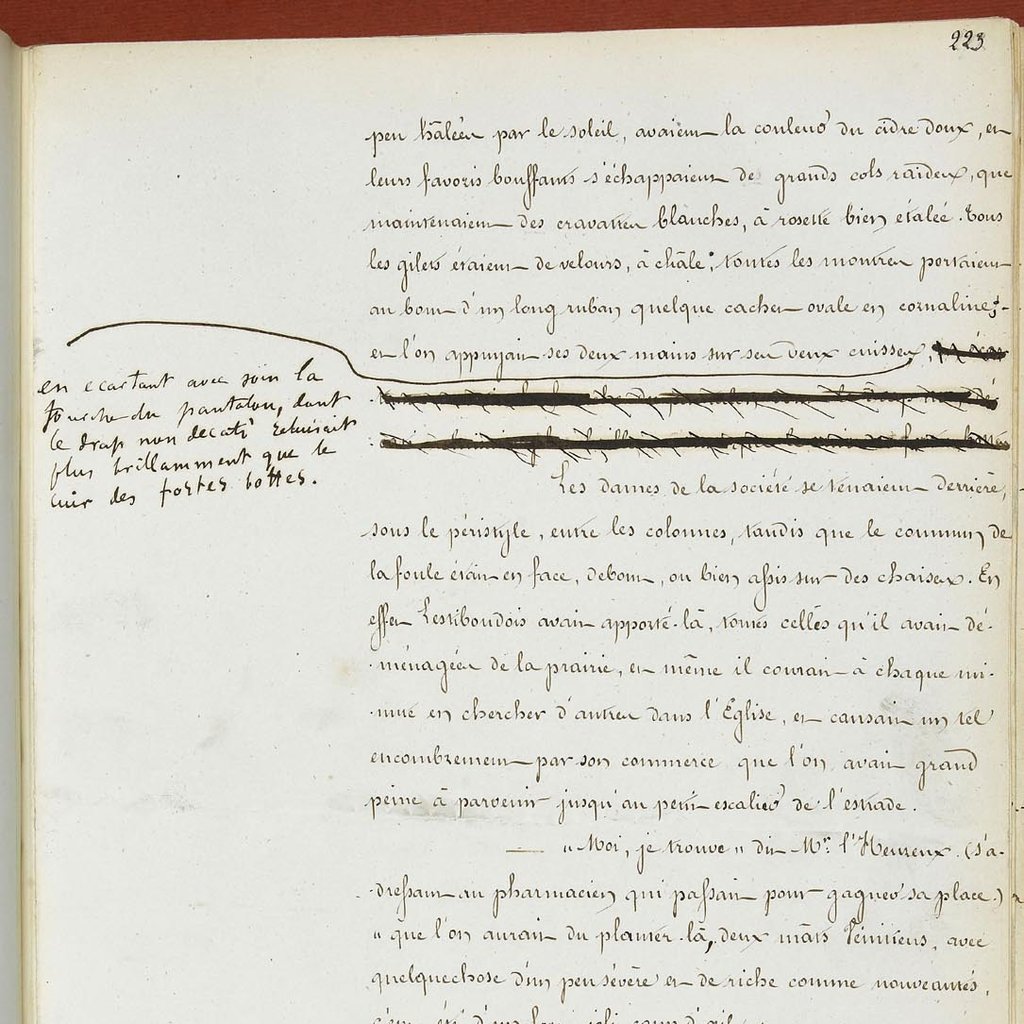 223
peu hâlées par le soleil, avaient la couleur du cidre doux, et
leurs favoris bouffants s'échappaient de grands cols raides, que
maintenaient des cravattes blanches, à rosette bien étalée. Tous
les gilets étaient de velours, à châle; toutes les montres portaient
au bout d'un long ruban quelque cachet ovale en cornaline;
et l'on appuyait ses deux mains sur ses deux cuisses,
en ecartant avec soin la
fourche du pantalon, dont
le drap non decati reluisait
plus brillamment que le
cuir des fortes bottes.
Les dames de la société se tenaient derrière,
sous le péristyle, entre les colonnes, tandis que le commun de
la foule était en face, debout, ou bien assis sur des chaises. En
effet Lestiboudois avait apporté là, toutes celles qu'il avait dé-
-ménagées de la prairie, et même il courait à chaque mi-
-nute en chercher d'autres dans l'Eglise, et causait un tel
encombrement par son commerce que l'on avait grand
peine à parvenir jusqu'au petit escalier de l'estrade.
— "Moi, je trouve" dit Mr. l'Heureux (s'a-
-dressant au pharmacien qui passait pour gagner sa place.)
"que l'on aurait du planter là, deux mâts Vénitiens, avec
quelquechose d'un peu sévère et de riche comme nouveautés,
c'eut été d'un fort joli coup d'œil